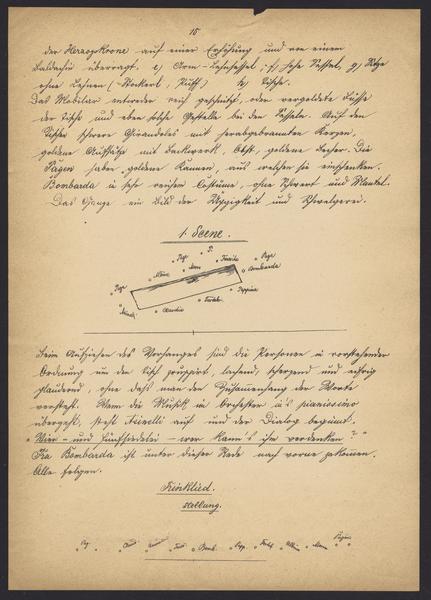 15
der Herzogskrone auf einer Erhöhung und von einem
Baldachin überragt. e) Arm-Lehnsessel, f) hohe Sessel, g) Sitze
ohne Lehnen (Stockerl, Puff.) h) Tische.
Das Mobilar entweder reich geschnitzt, oder vergoldete Füsse
der Tische und eben solche Gestelle bei den Sesseln. Auf den
Tischen schwere Girandoles mit herabgebrannten Kerzen,
goldene Aufsätze mit Backwerk, Obst, goldene Becher. Die
Pagen haben goldene Kannen, aus welchen sie einschenken.
Bombarda in sehr reichem Costüme, ohne Schwert und Mantel.
Das Ganze ein Bild der Üppigkeit und Schwelgerei.
1. Scene.
Page
Page
Bombarda
Page
Peppina
Claudia
Beim Aufziehen des Vorhanges sind die Personen in vorstehender
Ordnung um den Tisch gruppirt, lachend, scherzend und eifrig
plaudernd, ohne dass man den Zusammenhang der Worte
versteht. Wenn die Musik im Orchester in's pianissimo
übergeht, steht auf und der Dialog beginnt.
"Vier- und fünferlei - wer kann's ihm verdenken?"
Bombarda ist unter dieser Rede nach vorne gekommen.
Alle folgen.
Trinklied.
Stellung.
Pag.
Bomb.
Pepp.
Pagen